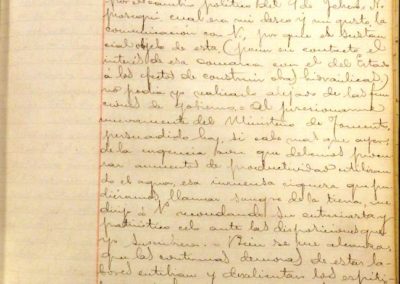 por el cambio político del 9 de Febrero, N.
proseguí, cual era mi deseo y mi gusto, la
comunicación con V., por que el sustan-
cial objeto de esta (poner en contacto el
interés de esa comarca con el del Estado
á los efectos de construir obras hidráulicas)
no podía yo realizarlo alejado de las fun-
ciones de Gobierno. = Al posesionarme
nuevamente del Ministerio de Fomento,
persuadido hoy, si cabe mas que ayer,
de la urgencia con que debemos procu-
rar aumentos de productividad utilizan-
do el agua, esa inmensa riqueza que pu-
diéramos llamar sangre de la tierra, me
dirijo á V. recordando su entusiasta y
patriótico celo ante las disposiciones que
yo suscribiera. = Bien se me alcanza
que las continuas demoras de estas la-
bores entibian y desalientan los espíri-